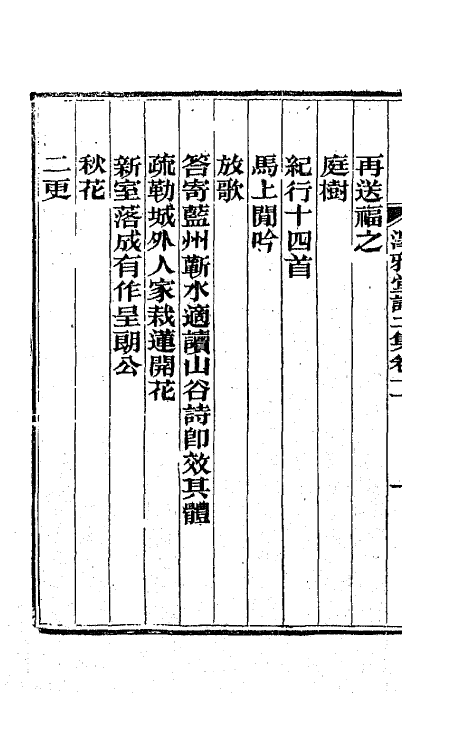 再送福之
庭樹
紀行十四首
馬上閒吟
放歌
答寄藍州蘄水適讀山谷詩卽效其體
疏勒城外人家栽蓮開花
新室落成有作呈朗公
秋花
二更